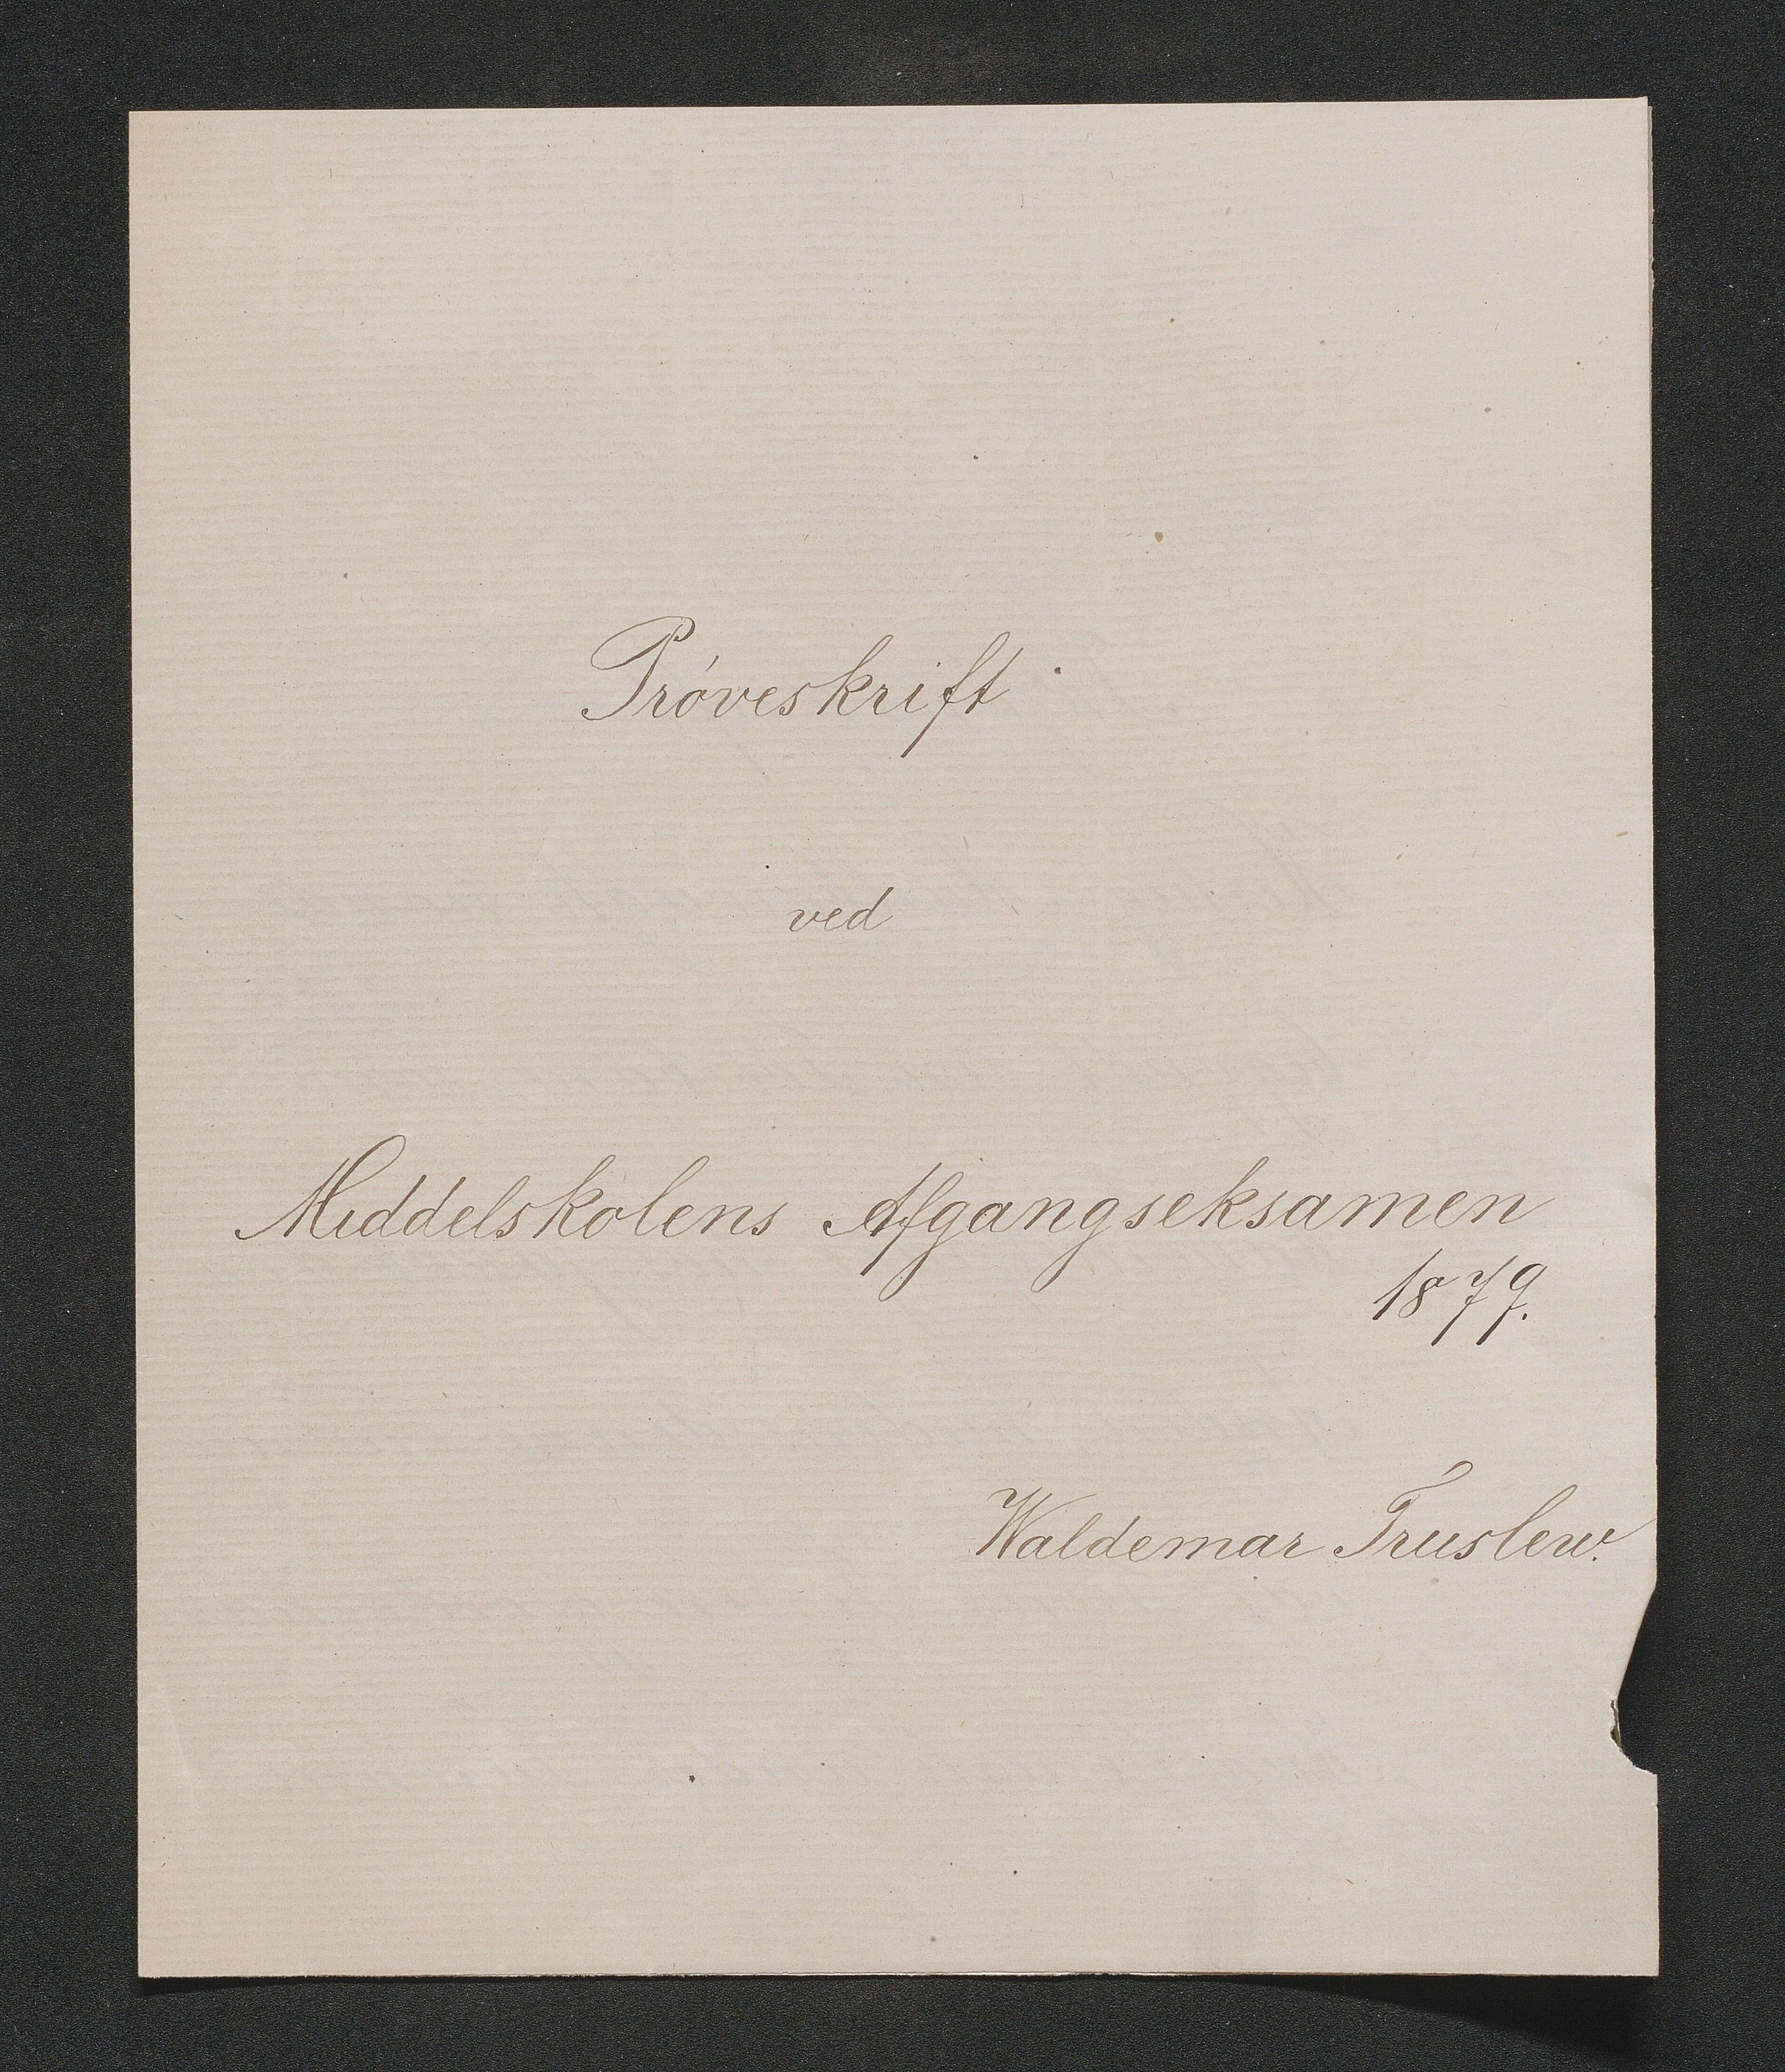 Próveskrift
ved
Middelskolens Afgangseksamen
1879.
Waldemar Truslew.